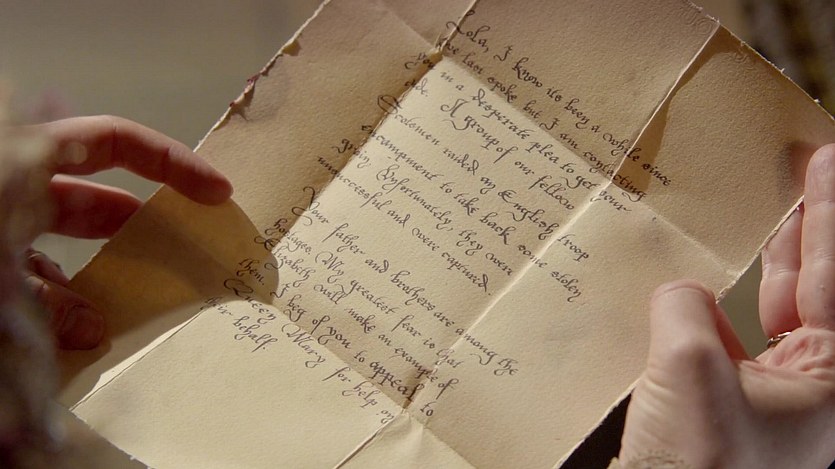 Lola, I know its been a while since
we last spoke but I am contacting
you in a desperate plea to get your
aide. A group of our fellow
Scotsmen raided an English troop
encampment to take back some stolen
grain. Unfortunately, they were
unsuccessful and were captured.
Your father and brothers are among the
hostages. My greatest fear is that
Elizabeth will make an example of
them. I beg of you to appeal to
Queen Mary for help on
their behalf.